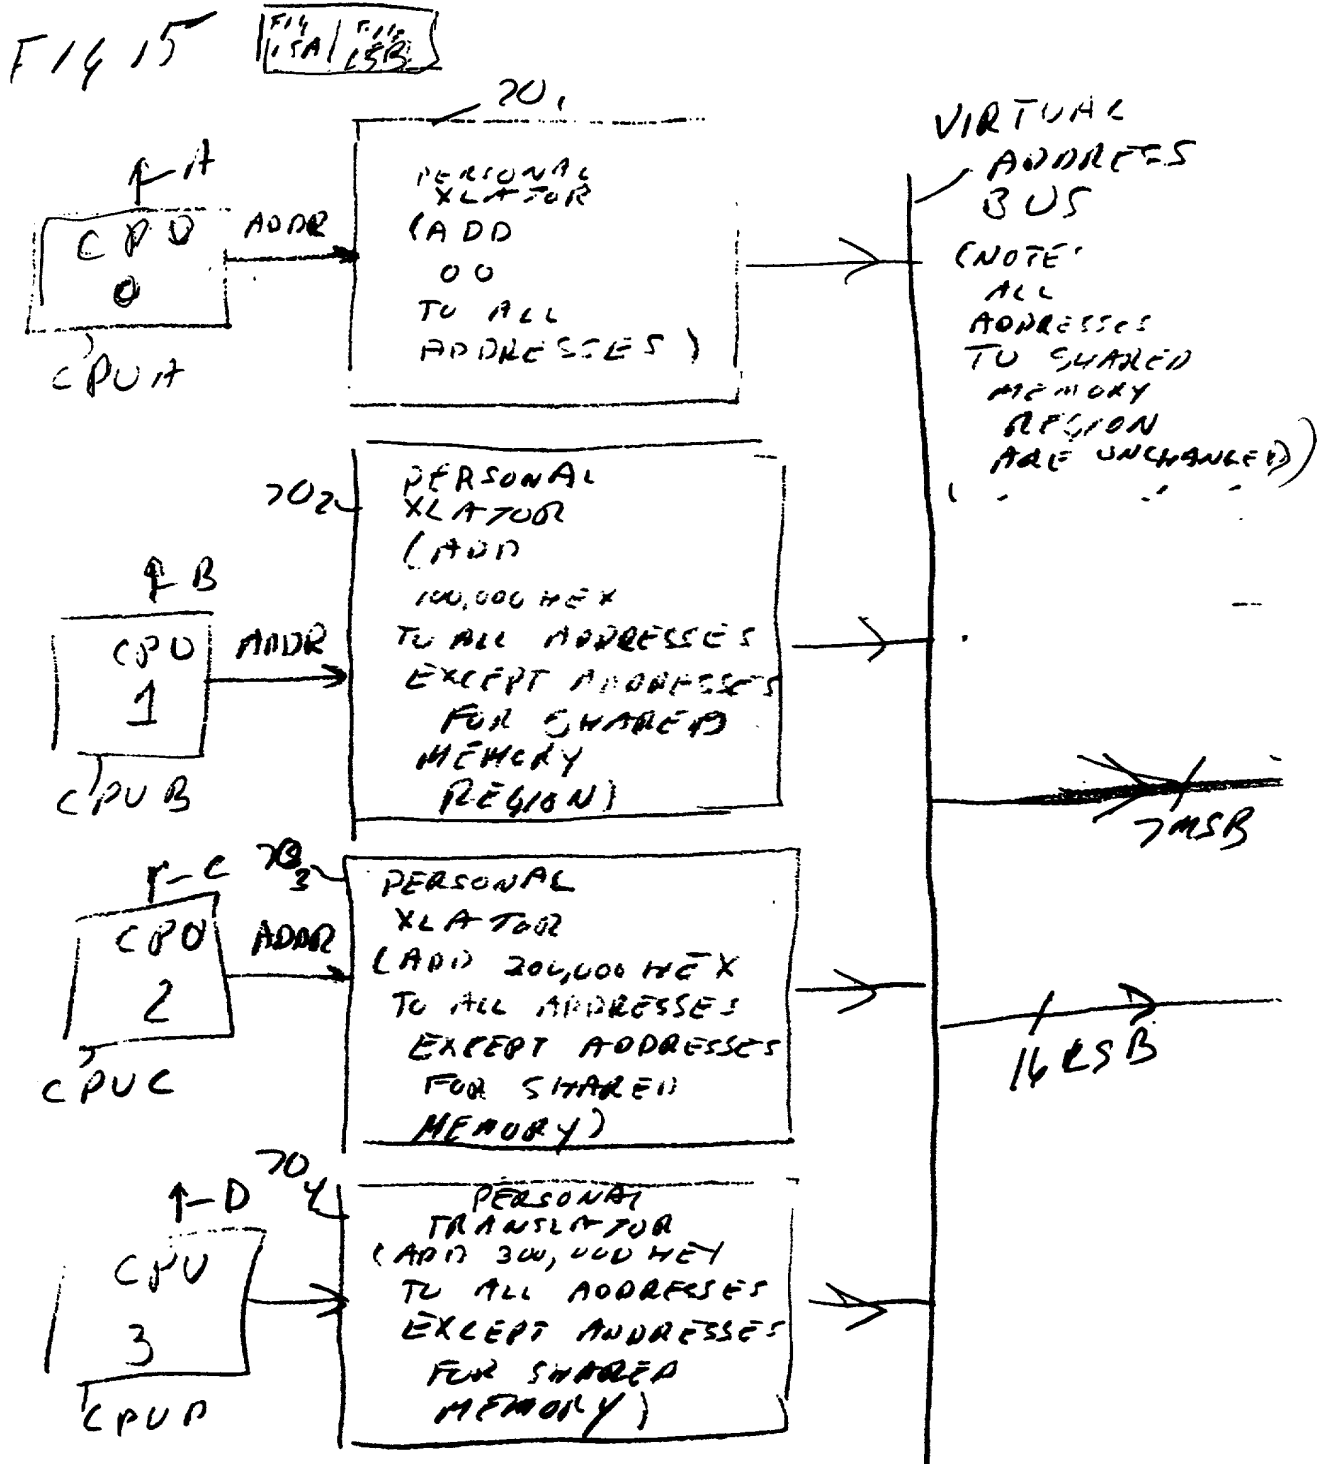 FIG 15
FIG 15A FIG 15B
70₁
A
CPU
0
CPUA
ADDR
PERSONAL
XLATOR
(ADD
00
TO ALL
ADDRESSES)
VIRTUAL
ADDRESS
BUS
(NOTE:
ALL
ADDRESSES
TO SHARED
MEMORY
REGION
ARE UNCHANGED)
70₂
B
CPU
1
CPUB
ADDR
PERSONAL
XLATOR
(ADD
100,000 HEX
TO ALL ADDRESSES
EXCEPT ADDRESSES
FOR SHARED
MEMORY
REGION)
7 MSB
70₃
C
CPU
2
CPUC
ADDR
PERSONAL
XLATOR
(ADD 200,000 HEX
TO ALL ADDRESSES
EXCEPT ADDRESSES
FOR SHARED
MEMORY)
16 LSB
70₄
D
CPU
3
CPUD
PERSONAL
TRANSLATOR
(ADD 300,000 HEX
TO ALL ADDRESSES
EXCEPT ADDRESSES
FOR SHARED
MEMORY)